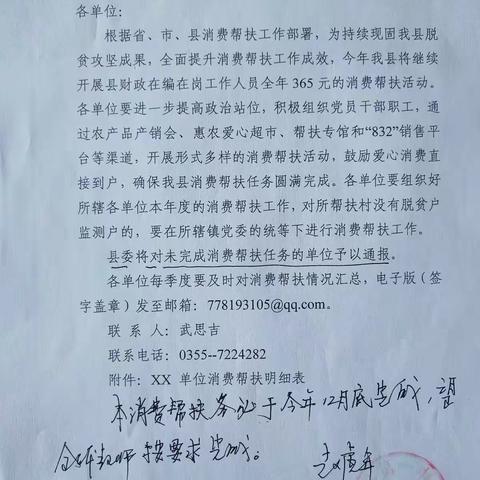 各单位：
根据省、市、县消费帮扶工作部署，为持续现固我县脱
贫攻坚成果，全面提升消费帮扶工作成效，今年我县将继续
开展县财政在编在岗工作人员全年 365 元的消费帮扶活动。
各单位要进一步提高政治站位，积极组织党员干部职工，通
过农产品产销会、惠农爱心超市、帮扶专馆和“832”销售平
台等渠道，开展形式多样的消费帮扶活动，鼓励爱心消费直
接到户，确保我县消费帮扶任务圆满完成。各单位要组织好
所辖各单位本年度的消费帮扶工作，对所帮扶村没有脱贫户
监测户的，要在所辖镇党委的统等下进行消费帮扶工作。
县委将对未完成消费帮扶任务的单位予以通报。
各单位每季度要及时对消费帮扶情况汇总，电子版（签
字盖章）发至邮箱：778193105@qq.com。
联 系 人：武思吉
联系电话：0355--7224282
附件：XX 单位消费帮扶明细表
本消费帮扶务必于今年12月底完成，望
全体教师按要求完成。